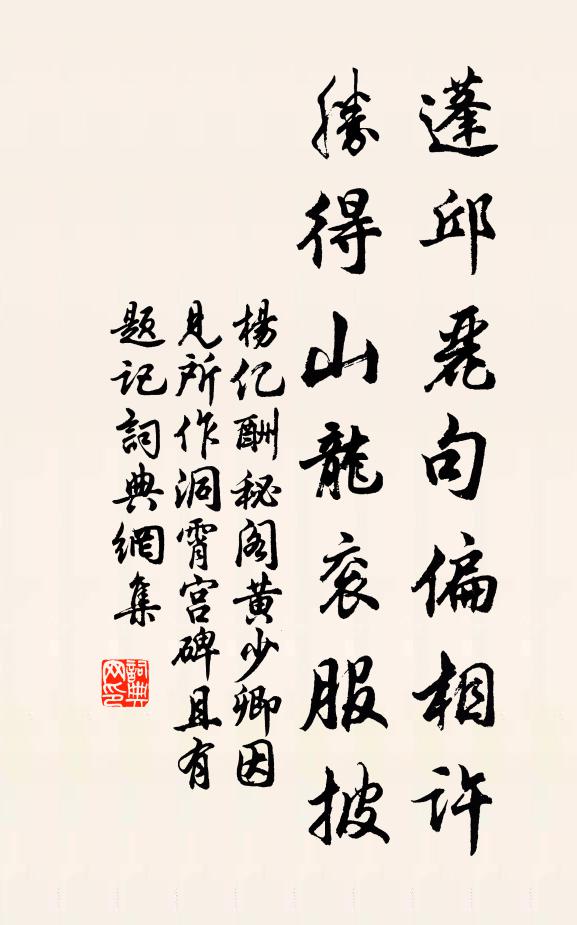 蓬邱麗句偏相許
勝得山龍衮服披
楊亿酬秘阁黄少卿因
見所作洞霄宫碑且有
题记詞典網集
詞典网印